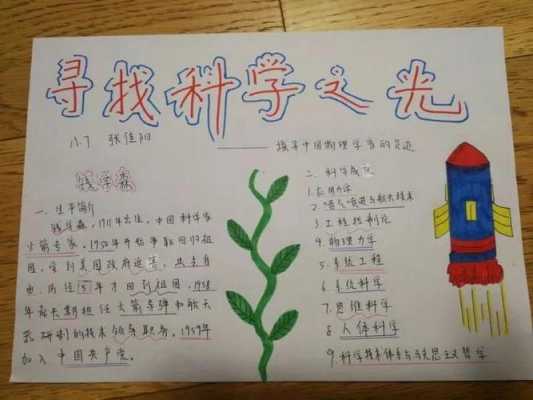 寻找科学之光
八.7 张佳阳
——探寻中国物理学家的足迹
钱学森
一.生平简介
钱学森,1911年出生,中国科学家
火箭专家,1950年开始争取回归祖
国,受到美国政府迫害,失去自
由,历经5年才回到祖国,1958
年起长期担任火箭导弹和航天
器研制的技术领导职务,1959年
加入中国共产党。
二.科学成就
1.应用力学
2.喷气推进与航天技术
3.工程控制论
4.物理力学
5.系统工程
6.系统科学
7.思维科学
8.人体科学
9.科学技术体系与马克思主义哲学